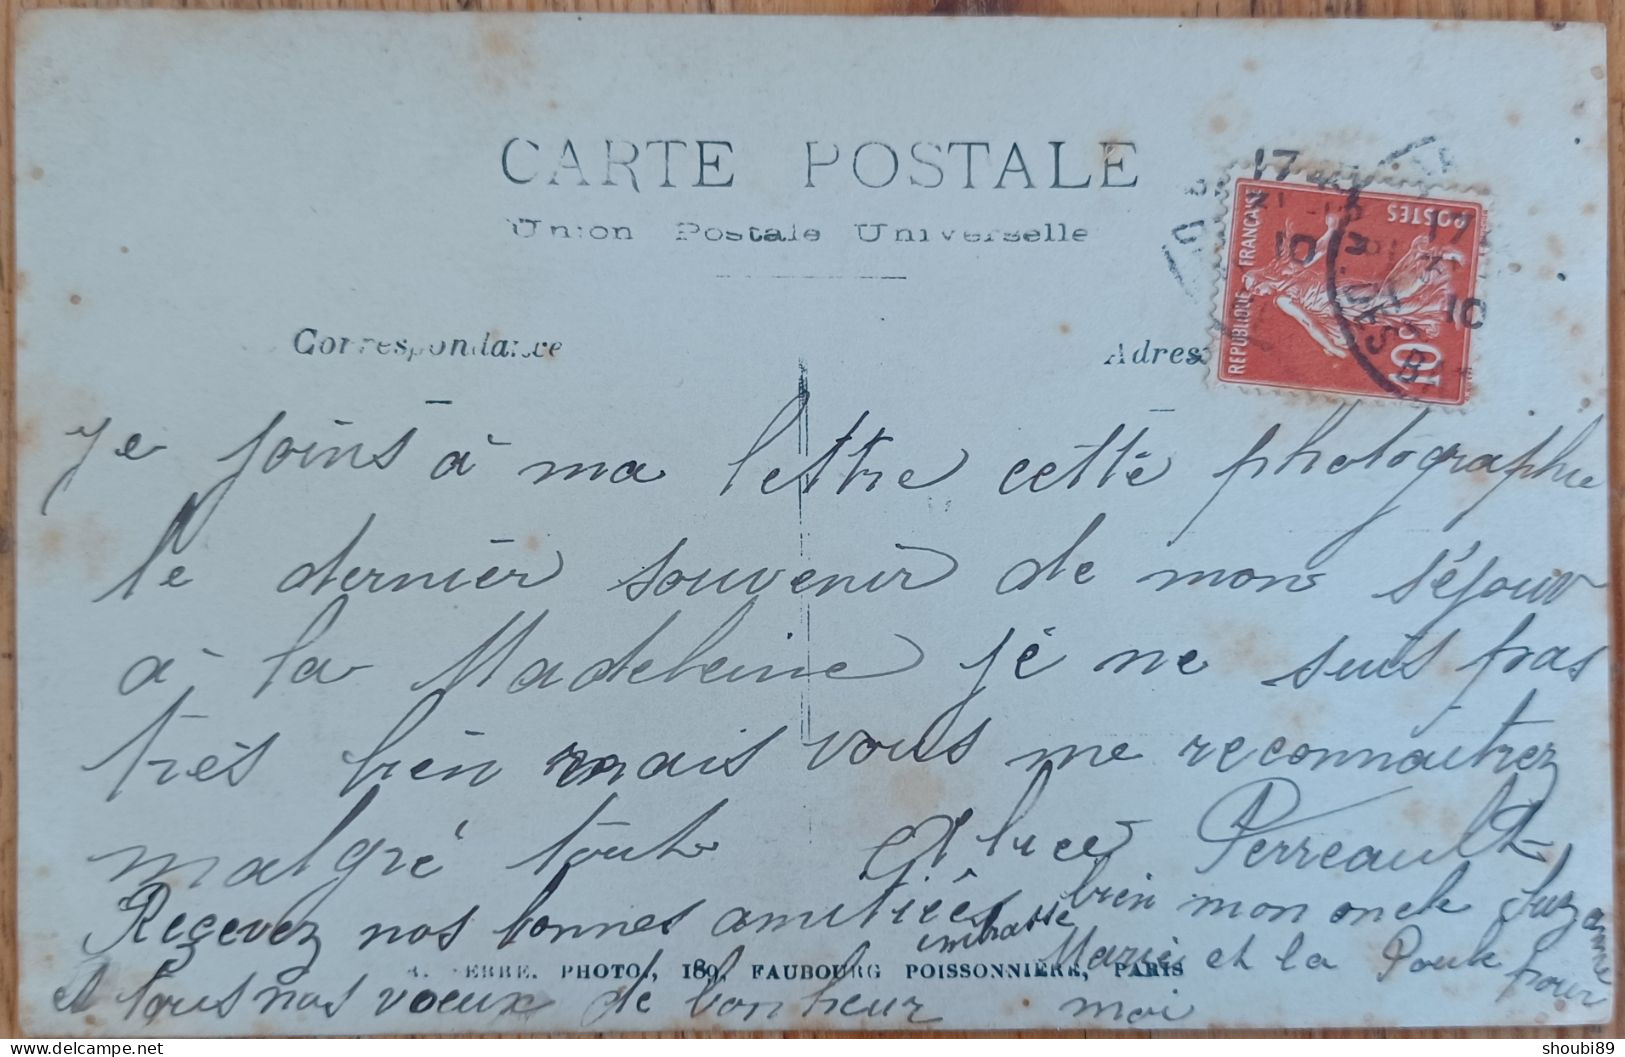 CARTE POSTALE
Union Postale Universelle
Correspondance
Adres
REPUBLIQUE FRANÇAISE
POSTES
10
17
10
17
10
je joins à ma lettre cette photographie
le dernier souvenir de mon séjour
à la Madeleine je ne suis pas
très bien mais vous me reconnaitrez
malgré tout Perreault
Reçevez nos bonnes amitiés embrasse bien mon oncle Suzanne
Marie et la Poule pour
et tous nos voeux de bonheur moi
PHOTO., 189, FAUBOURG POISSONNIÈRE, PARIS
shoubi89